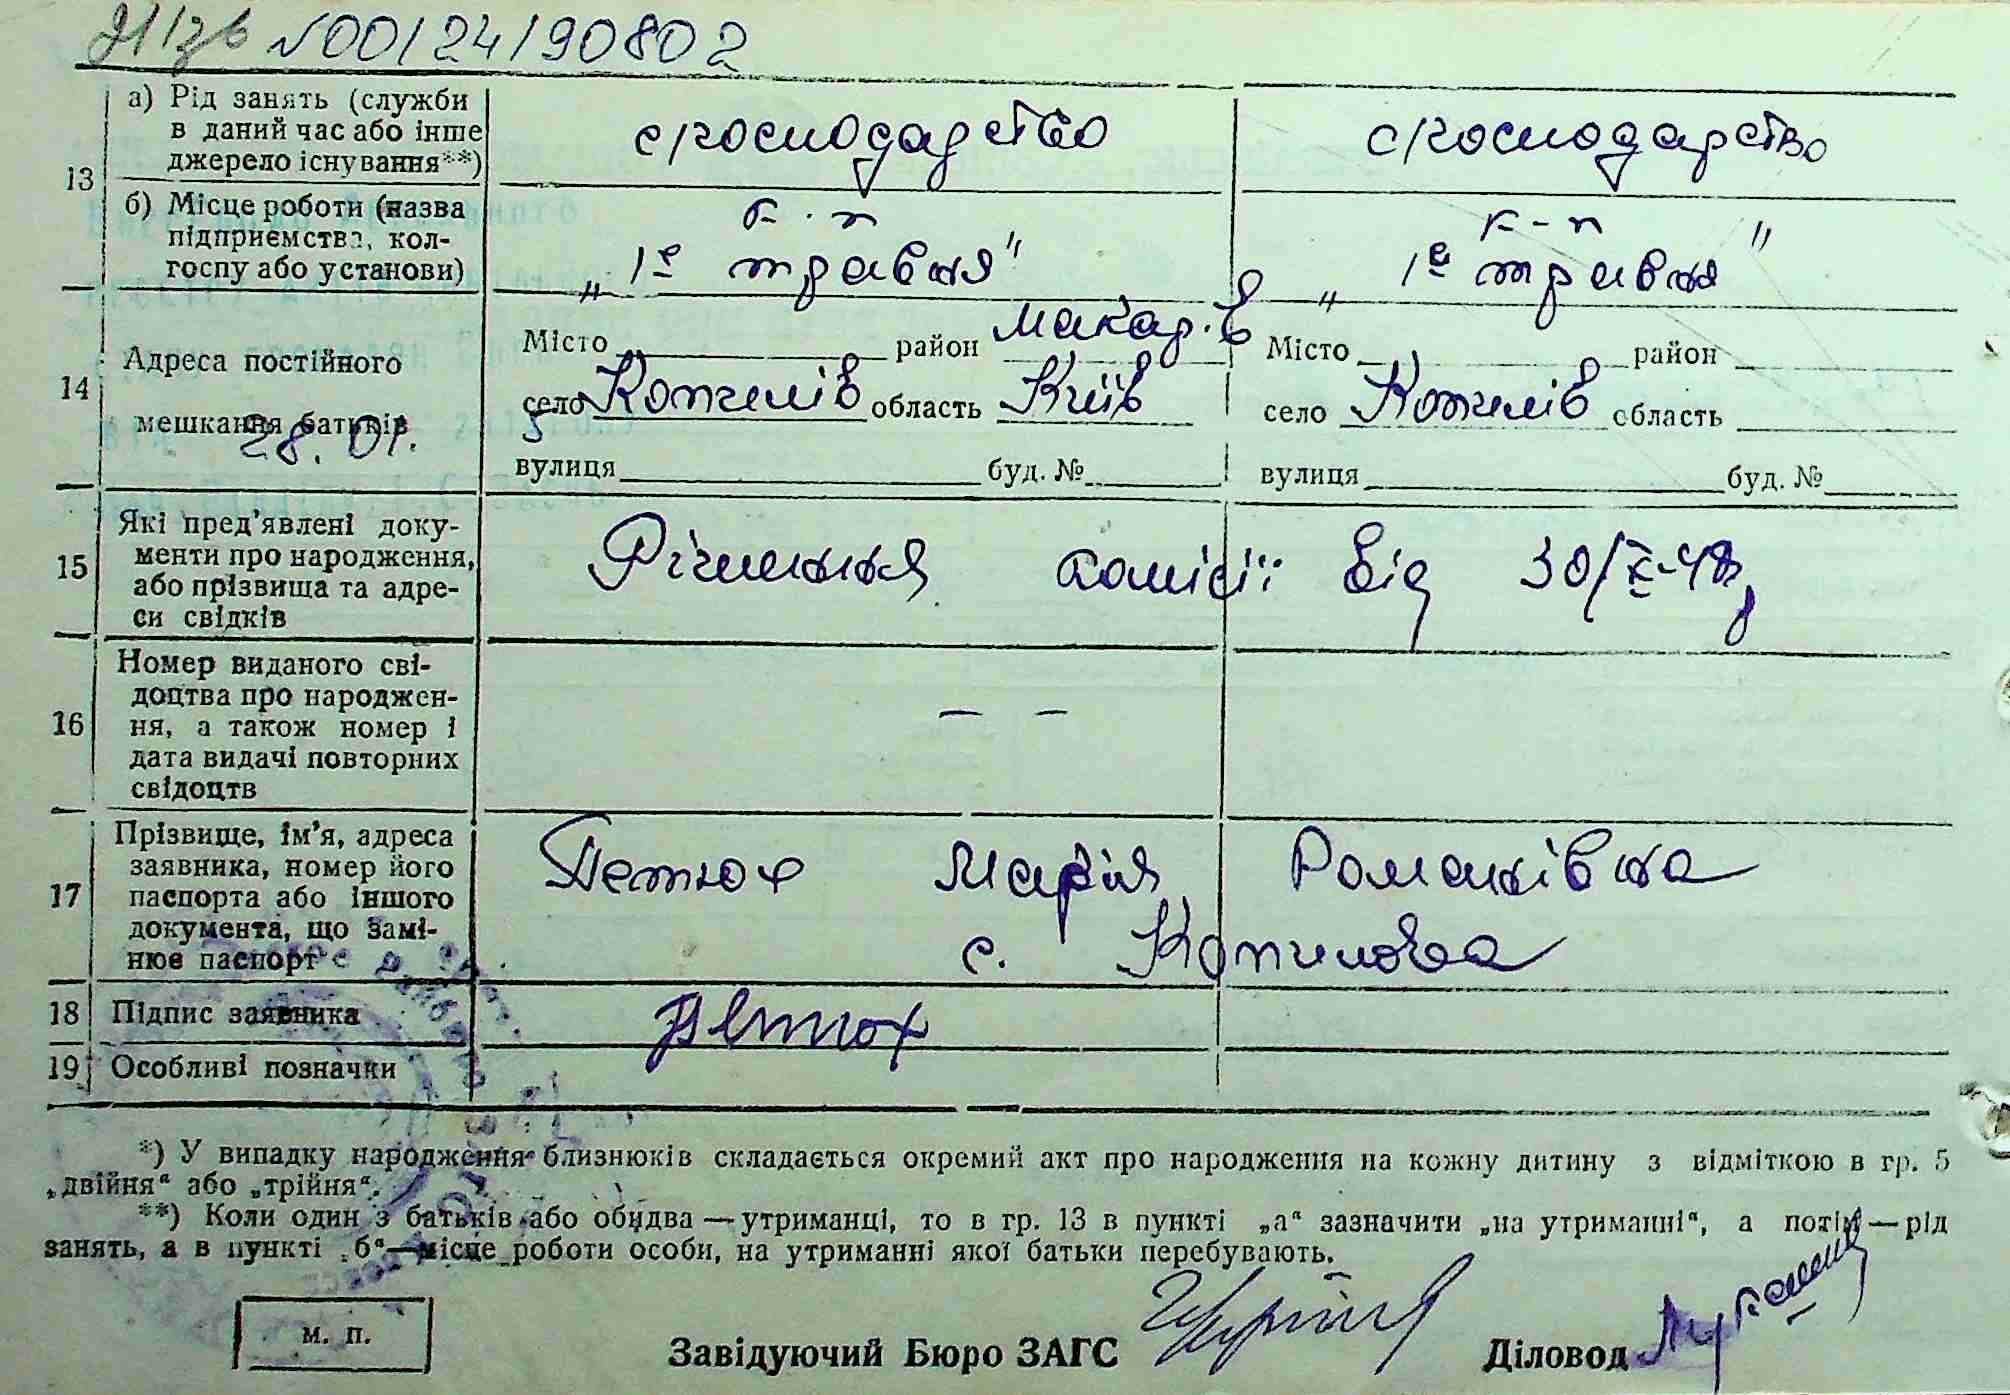 №00124190802
13
а) Рід занять (служби
в даний час або інше
джерело існування**)
с/господарство
с/господарство
б) Місце роботи (назва
підприємства, кол-
госпу або установи)
к-п
„1е травня"
к-п
„1е травня"
14
Адреса постійного
мешкання батьків
28.01.
Місто район Макар.в
село Копилів область Київ
вулиця буд. №
Місто район
село Копилів область
вулиця буд. №
15
Які пред'явлені доку-
менти про народження,
або прізвища та адре-
си свідків
Рішення комісії від 30/X-48р
16
Номер виданого сві-
доцтва про народжен-
ня, а також номер і
дата видачі повторних
свідоцтв
— —
17
Прізвище, ім'я, адреса
заявника, номер його
паспорта або іншого
документа, що замі-
нює паспорт
Петюх Марія Романівна
с. Копилова
18 Підпис заявника
Петюх
19 Особливі позначки
*) У випадку народження близнюків складається окремий акт про народження на кожну дитину з відміткою в гр. 5
„двійня“ або „трійня“.
**) Коли один з батьків або обидва — утриманці, то в гр. 13 в пункті „а“ зазначити „на утриманні“, а потім — рід
занять, а в пункті „б“ — місце роботи особи, на утриманні якої батьки перебувають.
м. п.
Завідуючий Бюро ЗАГС
Діловод